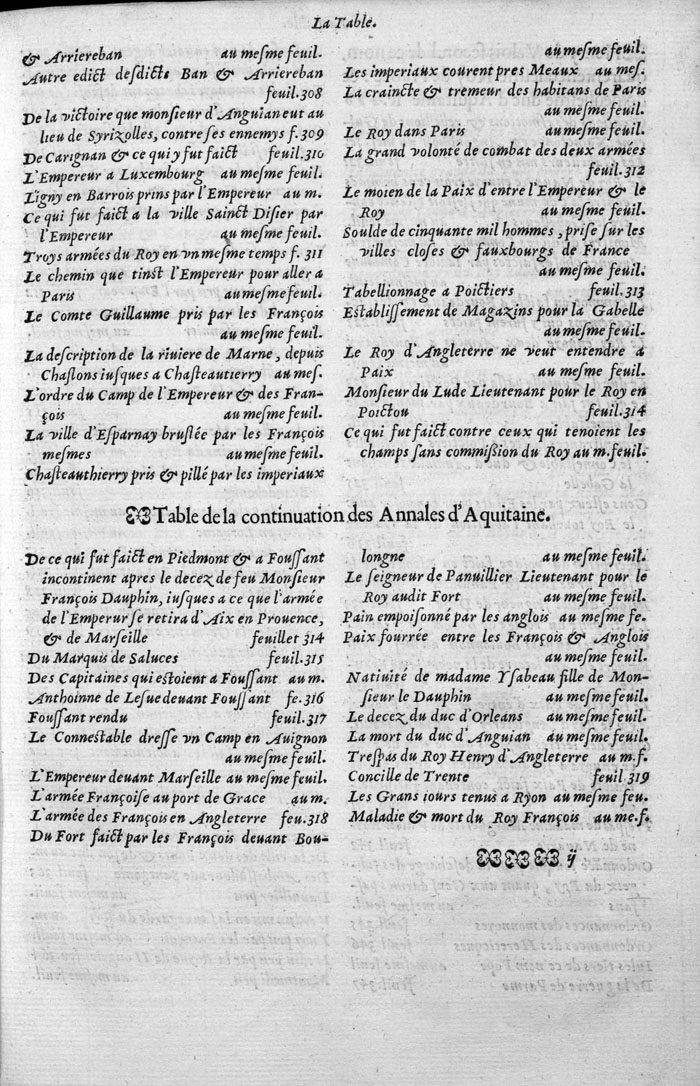 La Table.
& Arriereban au meſme feuil.
Autre edict deſdicts Ban & Arriereban
feuil.308
De la victoire que monſieur d'Anguian eut au
lieu de Syrizolles, contre ſes ennemys f.309
De Carignan & ce qui y fut faict feuil.310
L'Empereur a Luxembourg au meſme feuil.
Ligny en Barrois prins par l'Empereur au m.
Ce qui fut faict a la ville Sainct Diſier par
l'Empereur au meſme feuil.
Troys armées du Roy en vn meſme temps f. 311
Le chemin que tinſt l'Empereur pour aller a
Paris au meſme feuil.
Le Comte Guillaume pris par les François
au meſme feuil.
La deſcription de la riuiere de Marne, depuis
Chaſlons iuſques a Chaſteautierry au meſ.
L'ordre du Camp de l'Empereur & des Fran-
çois au meſme feuil.
La ville d'Eſparnay bruſlée par les François
meſmes au meſme feuil.
Chaſteauthierry pris & pillé par les imperiaux
au meſme feuil.
Les imperiaux courent pres Meaux au meſ.
La craincte & tremeur des habitans de Paris
au meſme feuil.
Le Roy dans Paris au meſme feuil.
La grand volonté de combat des deux armées
feuil.312
Le moien de la Paix d'entre l'Empereur & le
Roy au meſme feuil.
Soulde de cinquante mil hommes, priſe ſur les
villes cloſes & fauxbourgs de France
au meſme feuil.
Tabellionnage a Poictiers feuil.313
Eſtabliſſement de Magazins pour la Gabelle
au meſme feuil.
Le Roy d'Angleterre ne veut entendre a
Paix au meſme feuil.
Monſieur du Lude Lieutenant pour le Roy en
Poictou feuil.314
Ce qui fut faict contre ceux qui tenoient les
champs ſans commißion du Roy au m.feuil.
Table de la continuation des Annales d'Aquitaine.
De ce qui fut faict en Piedmont & a Fouſſant
incontinent apres le decez de feu Monſieur
François Dauphin, iuſques a ce que l'armée
de l'Emperur ſe retira d'Aix en Prouence,
& de Marſeille feuillet 314
Du Marquis de Saluces feuil.315
Des Capitaines qui eſtoient a Fouſſant au m.
Anthoinne de Leſue deuant Fouſſant fe.316
Fouſſant rendu feuil.317
Le Conneſtable dreſſe vn Camp en Auignon
au meſme feuil.
L'Empereur deuant Marſeille au meſme feuil.
L'armée Françoiſe au port de Grace au m.
L'armée des François en Angleterre feu.318
Du Fort faict par les François deuant Bou-
longne au meſme feuil.
Le ſeigneur de Panuillier Lieutenant pour le
Roy audit Fort au meſme feuil.
Pain empoiſonné par les anglois au meſme fe.
Paix fourrée entre les François & Anglois
au meſme feuil.
Natiuité de madame Yſabeau fille de Mon-
ſieur le Dauphin au meſme feuil.
Le decez du duc d'Orleans au meſme feuil.
La mort du duc d'Anguian au meſme feuil.
Treſpas du Roy Henry d'Angleterre au m.f.
Concille de Trente feuil 319
Les Grans iours tenus a Ryon au meſme feu.
Maladie & mort du Roy François au me.f.
ÿ